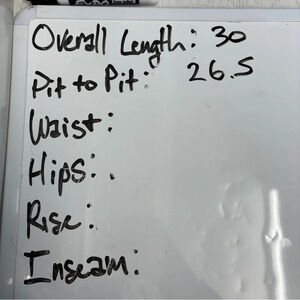 Overall Length: 30
Pit to Pit: 26.5
Waist:
Hips:.
Rise:
Inseam: